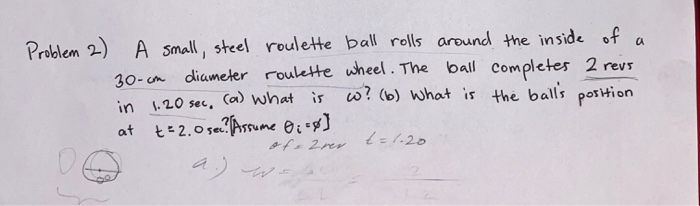 Problem 2) A small, steel roulette ball rolls around the inside of a
30-cm diameter roulette wheel. The ball completes 2 revs
in 1.20 sec. (a) What is ω? (b) What is the ball's position
at t=2.0 sec? [Assume θi=ø]
θf=2rev t=1.20
a.) w=